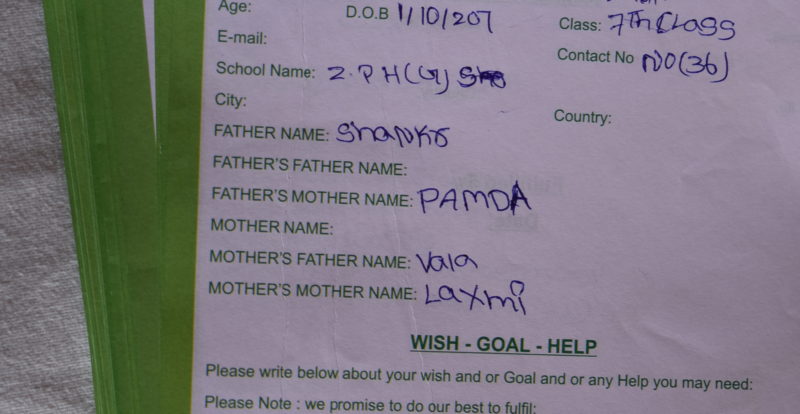 Age: D.O.B 1/10/207 Class: 7Th CLASS
E-mail: Contact No NO(36)
School Name: Z.PH(G)
City: Country:
FATHER NAME:
FATHER'S FATHER NAME:
FATHER'S MOTHER NAME: PAMDA
MOTHER NAME:
MOTHER'S FATHER NAME: Vala
MOTHER'S MOTHER NAME: Laxmi
WISH - GOAL - HELP
Please write below about your wish and or Goal and or any Help you may need:
Please Note : we promise to do our best to fulfil: